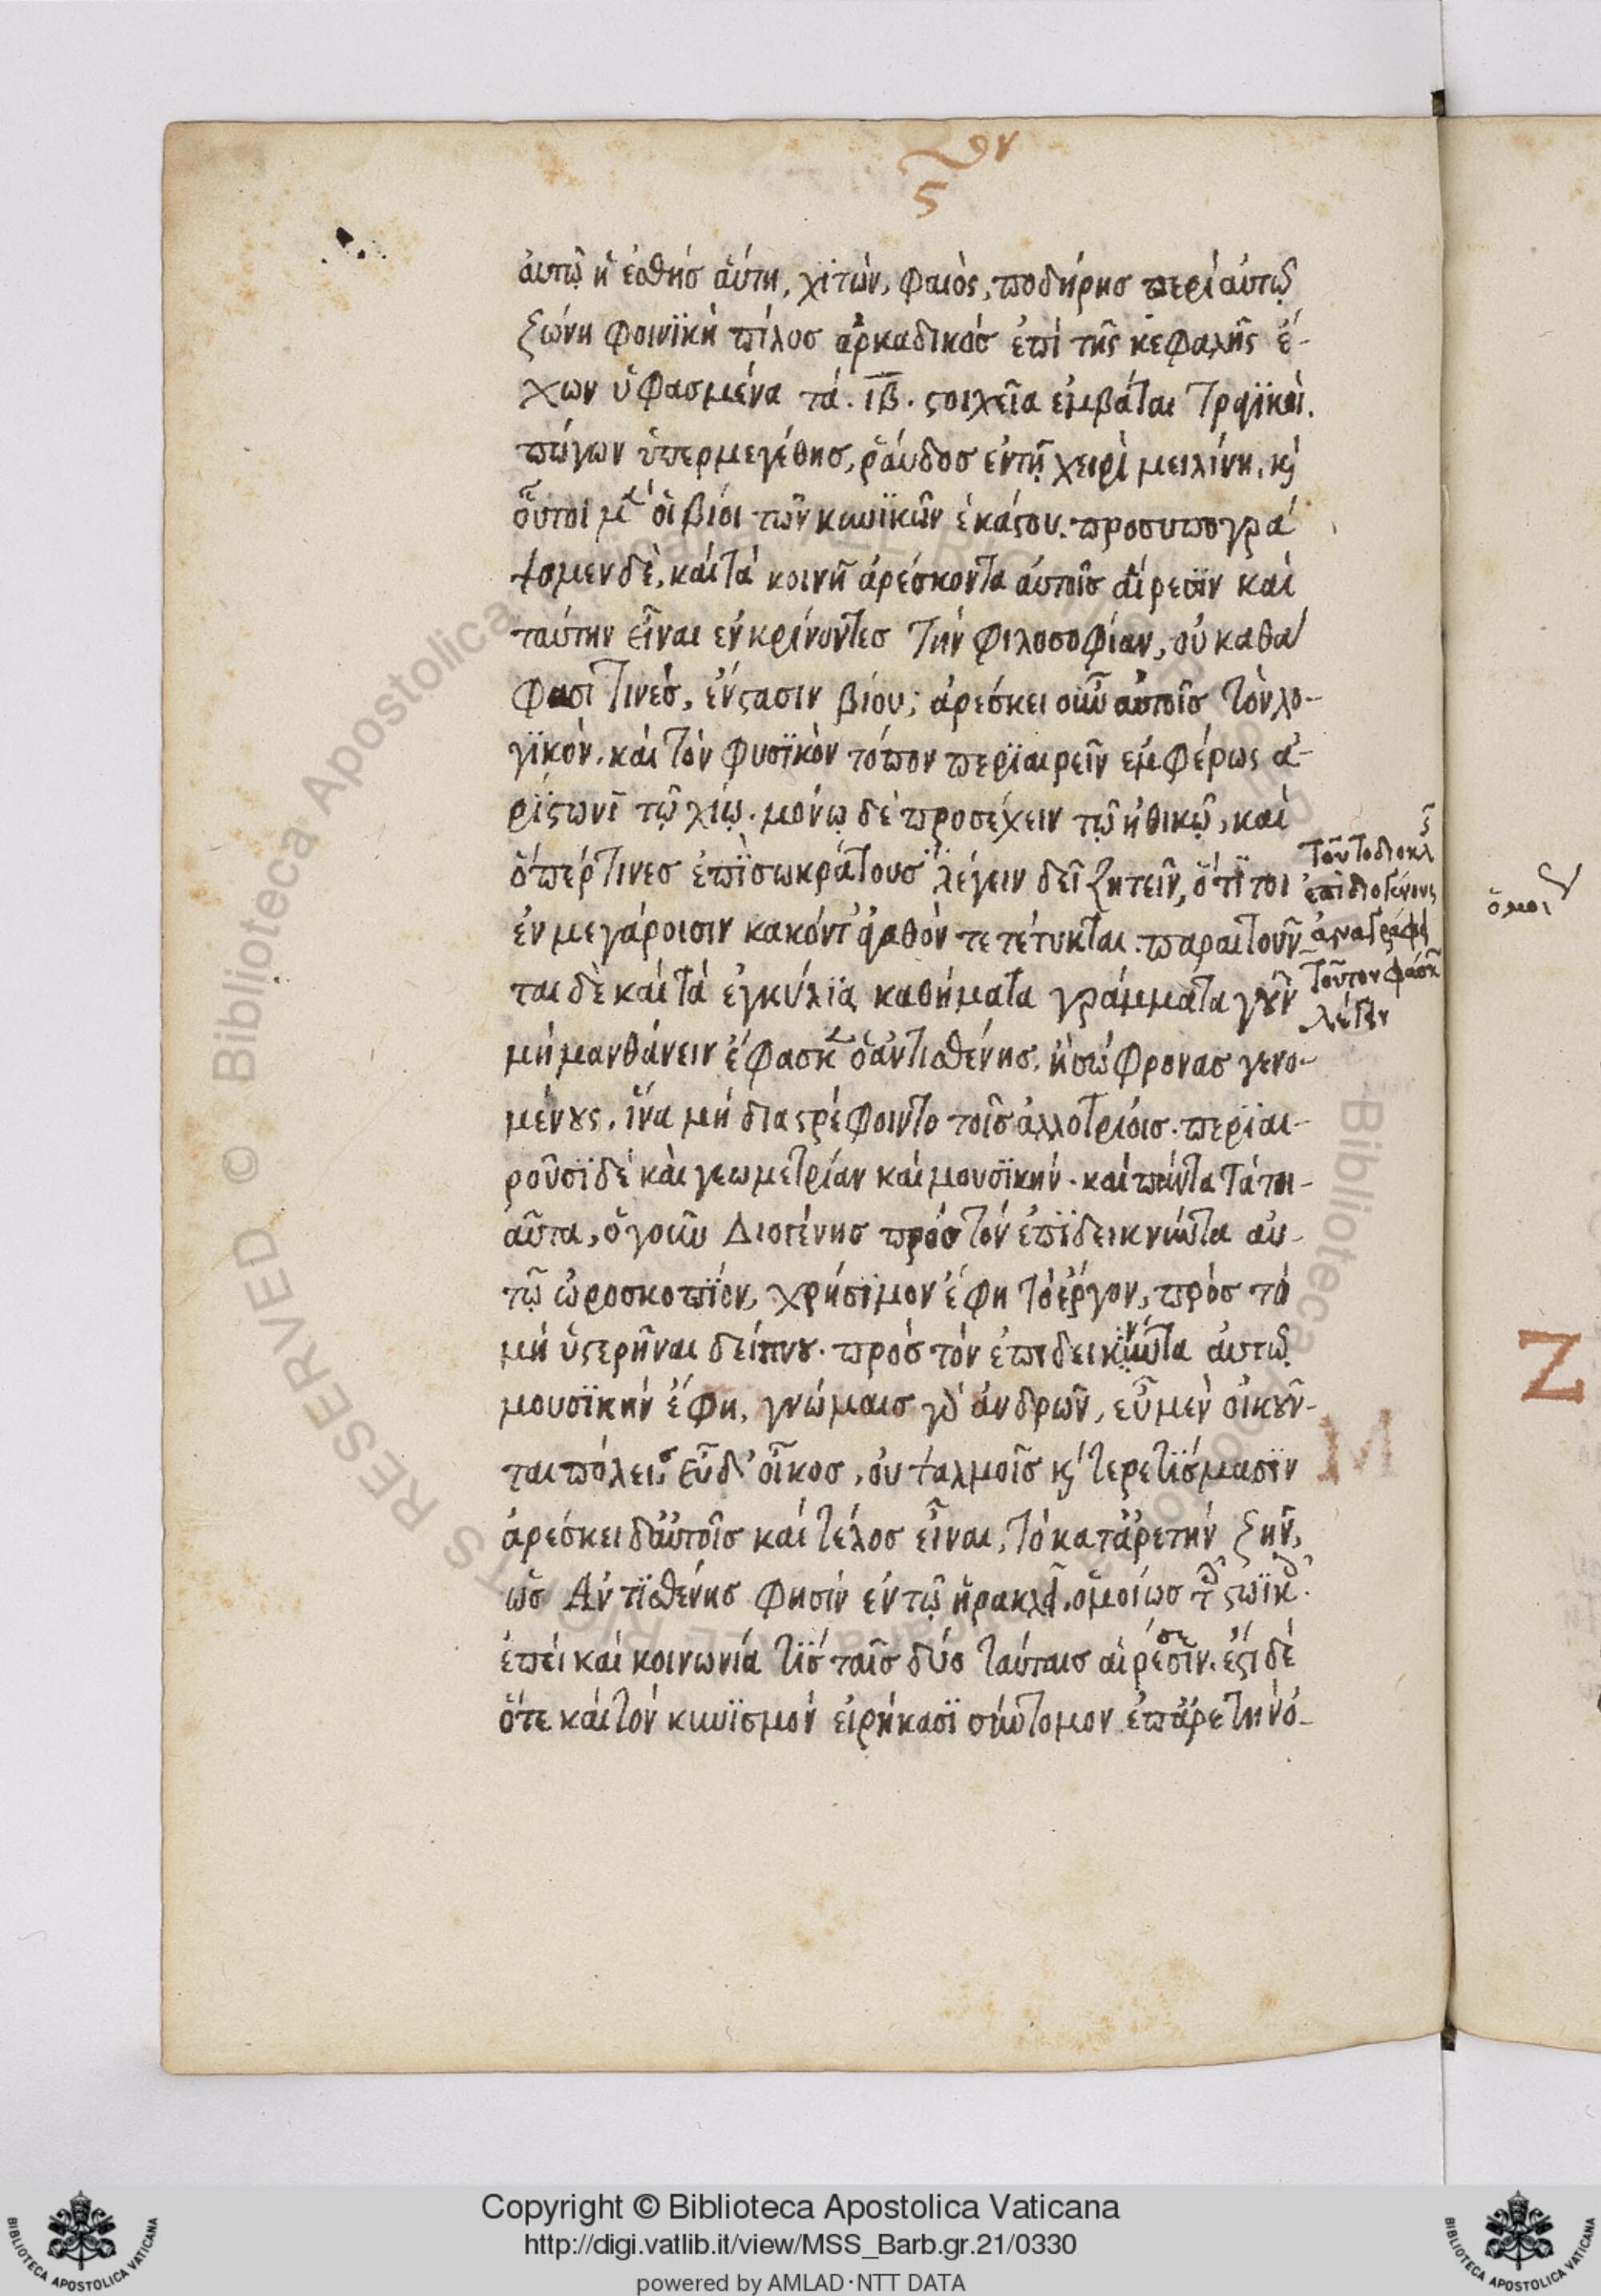 αὐτῷ ἡ ἐσθὴσ αὕτη, χϊτὼν, φαιὸς, ποδήρησ περὶ αὐτῷ
ζώνη φοινϊκὴ πίλοσ ἀρκαδικόσ ἐπὶ τῆς κεφαλῆς ἔ-
χων ὑφασμένα τὰ. ιβ. ϛοιχεῖα ἐμβάται τραγϊκοὶ.
πώγων ὑπερμεγέθησ, ῥάυδοσ ἐν τῇ χειρὶ μειλίνη. κὶ
οὗτοι μὲ οἱ βίοι τῶν κυνϊκῶν ἑκάϛου. προσυπογρά
ψομεν δὲ, καὶ τὰ κοινῇ ἀρέσκοντα αὐτοῖσ αἵρεσϊν καὶ
ταύτην εἶναι ἐνκρίνοντεσ τὴν φιλοσοφίαν, οὐ καθά
φασί τινέσ, ἔνϛασιν βίου; ἀρέσκει οὖν αὐτοῖσ τὸν λο-
γϊκὸν. καὶ τὸν φυσϊκὸν τόπον περϊαιρεῖν ἐμφέρως ἀ-
ρίϛωνϊ τῷ χίῳ. μόνῳ δὲ προσέχειν τῷ ἠθικῷ, καὶ
ὅπέρ τινεσ ἐπὶ σωκράτουσ λέγειν δεῖ ζητεῖν, ὅτϊ τοι
ἐν μεγάροισιν κακόντ' ἀγαθόν τε τέτυκται. παραιτοῦν-
ται δὲ καὶ τὰ ἐγκύλϊα καθήματα γράμματα γοῦν
μὴ μανθάνειν ἔφασκ ὁ ἀντισθένησ, ἢ σώφρονασ γενο-
μένους, ἵνα μὴ διαϛρέφοιντο τοῖσ ἀλλοτρίοισ. περϊαι-
ροῦσϊ δὲ καὶ γεωμετρίαν καὶ μουσϊκὴν. καὶ πάντα τὰ τοι-
αῦτα, ὁ γοῦν Διογένησ πρόσ τὸν ἐπϊδεικνύντα αὐ-
τῷ ὡροσκοπϊον, χρήσϊμον ἔφη τὸ ἔργον, πρόσ τὸ
μὴ ὑϛερῆναι δείπνου. πρόσ τόν ἐπιδεικνύντα αὐτῷ
μουσϊκὴν ἔφη, γνώμαισ γὰ ἀνδρῶν, εὖ μὲν οἰκοῦν-
ται πόλεισ εὖ δ' οἶκοσ, οὐ ψαλμοῖσ κὶ τερετϊσμασϊν
ἀρέσκει δ' αὐτοῖσ καὶ τέλοσ εἶναι, τὸ κατ' ἀρετὴν ζῆν,
ὡσ Ἀντϊσθένησ φησὶν ἐν τῷ ἡρακλεῖ, ὁμοίωσ τοῖς ϛωϊκ.
ἐπεὶ καὶ κοινωνία τϊσ ταῖσ δύο ταύταισ αἱρέσεσϊν. ἔϛι δὲ
ὅτε καὶ τὸν κυνϊσμὸν εἰρήκασϊ σύντομον ἐπ' ἀρετὴν ὁ-
τοῦτο διοκλ
ἐπὶ διογένους
ἀναγράφει
τοῦτον φάσκ
λέγειν
Z
M
Copyright © Biblioteca Apostolica Vaticana
http://digi.vatlib.it/view/MSS_Barb.gr.21/0330
powered by AMLAD·NTT DATA
BIBLIOTECA APOSTOLICA VATICANA
BIBLIOTECA APOSTOLICA VATICANA